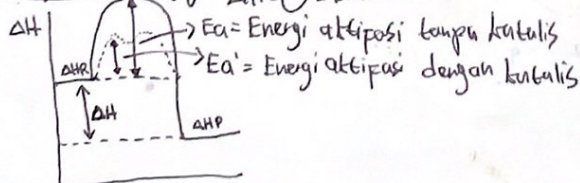 ΔH
Ea = Energi aktifasi tanpa katalis
Ea' = Energi aktifasi dengan katalis
ΔHR
ΔH
ΔHP